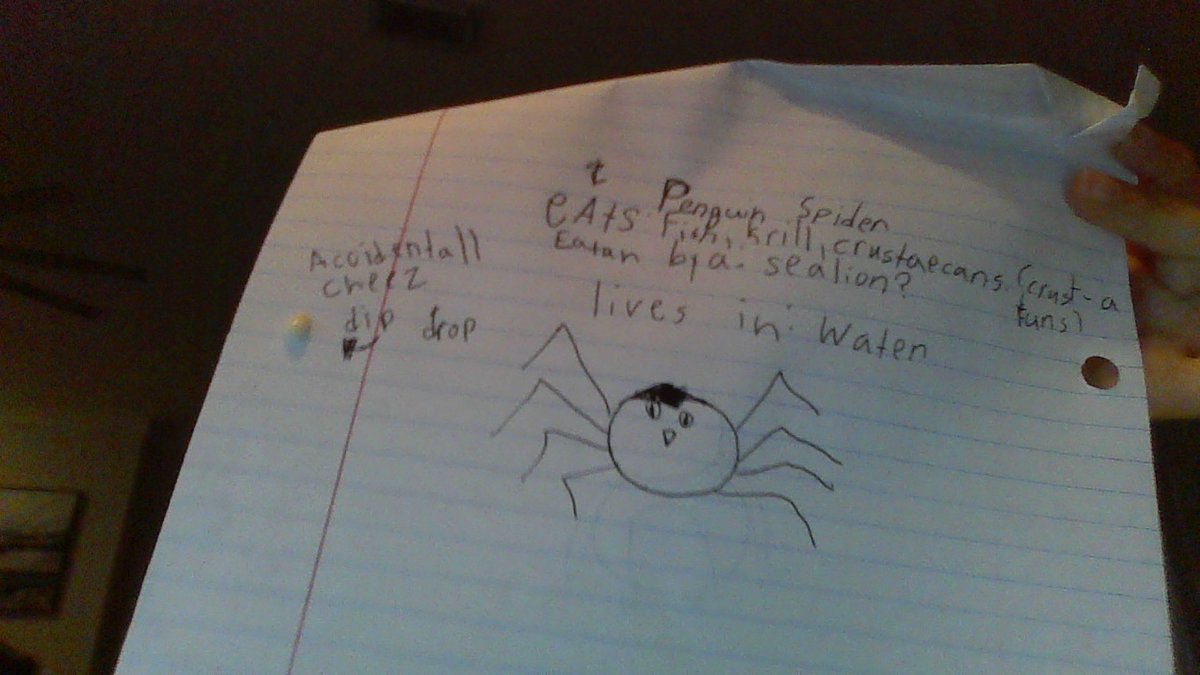 Penguin Spider
eAts: Fish, krill, crustaecans. (crust-a
funs)
Eatan by a. sealion?
lives in: Water
Accidentall
cheez
dip drop